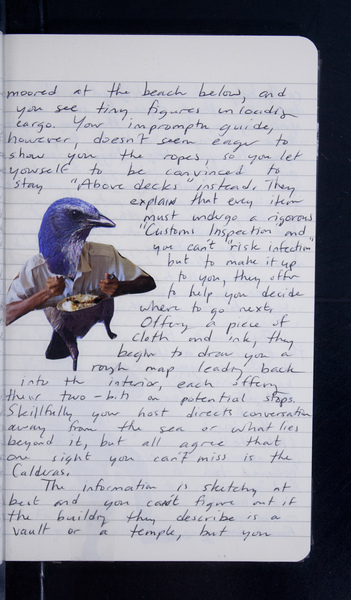 moored at the beach below, and
you see tiny figures unloading
cargo. Your impromptu guide,
however, doesn't seem eager to
show you the ropes, so you let
yourself to be convinced to
stay "Above decks" instead. They
explain that every item
must undergo a rigorous
"Customs Inspection" and
you can't "risk infection"
but to make it up
to you, they offer
to help you decide
where to go next.
Offering a piece of
cloth and ink, they
begin to draw you a
rough map leading back
into the interior, each offering
their two-bits on potential stops.
Skillfully your host directs conversation
away from the sea or what lies
beyond it, but all agree that
one sight you can't miss is the
Calderas.
The information is sketchy at
best and you can't figure out if
the building they describe is a
vault or a temple, but you